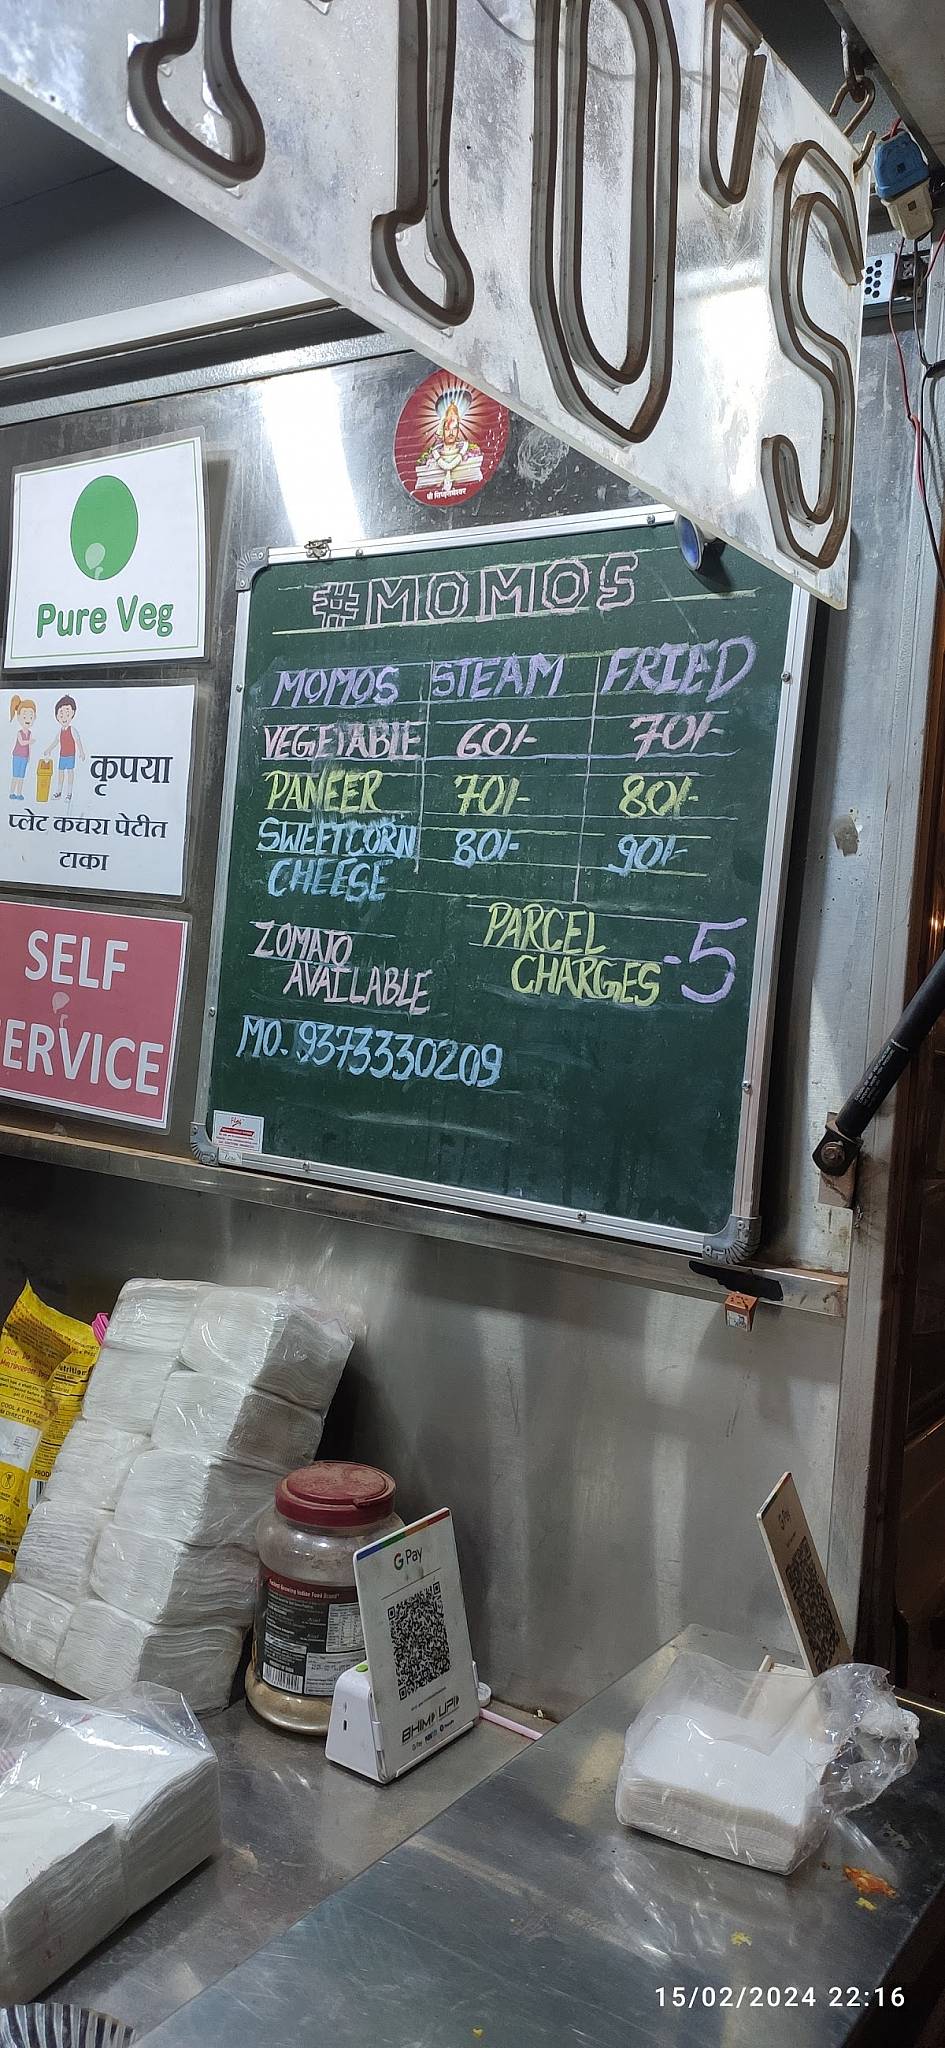 MO'S
श्री सिध्दरामेश्वर
Pure Veg
कृपया
प्लेट कचरा पेटीत
टाका
SELF
SERVICE
#MOMOS
MOMOS STEAM FRIED
VEGETABLE 60/- 70/-
PANEER 70/- 80/-
SWEETCORN 80/- 90/-
CHEESE
ZOMATO
AVAILABLE
PARCEL
CHARGES -5
MO. 9373330209
G Pay
BHIM UPI
G Pay
15/02/2024 22:16